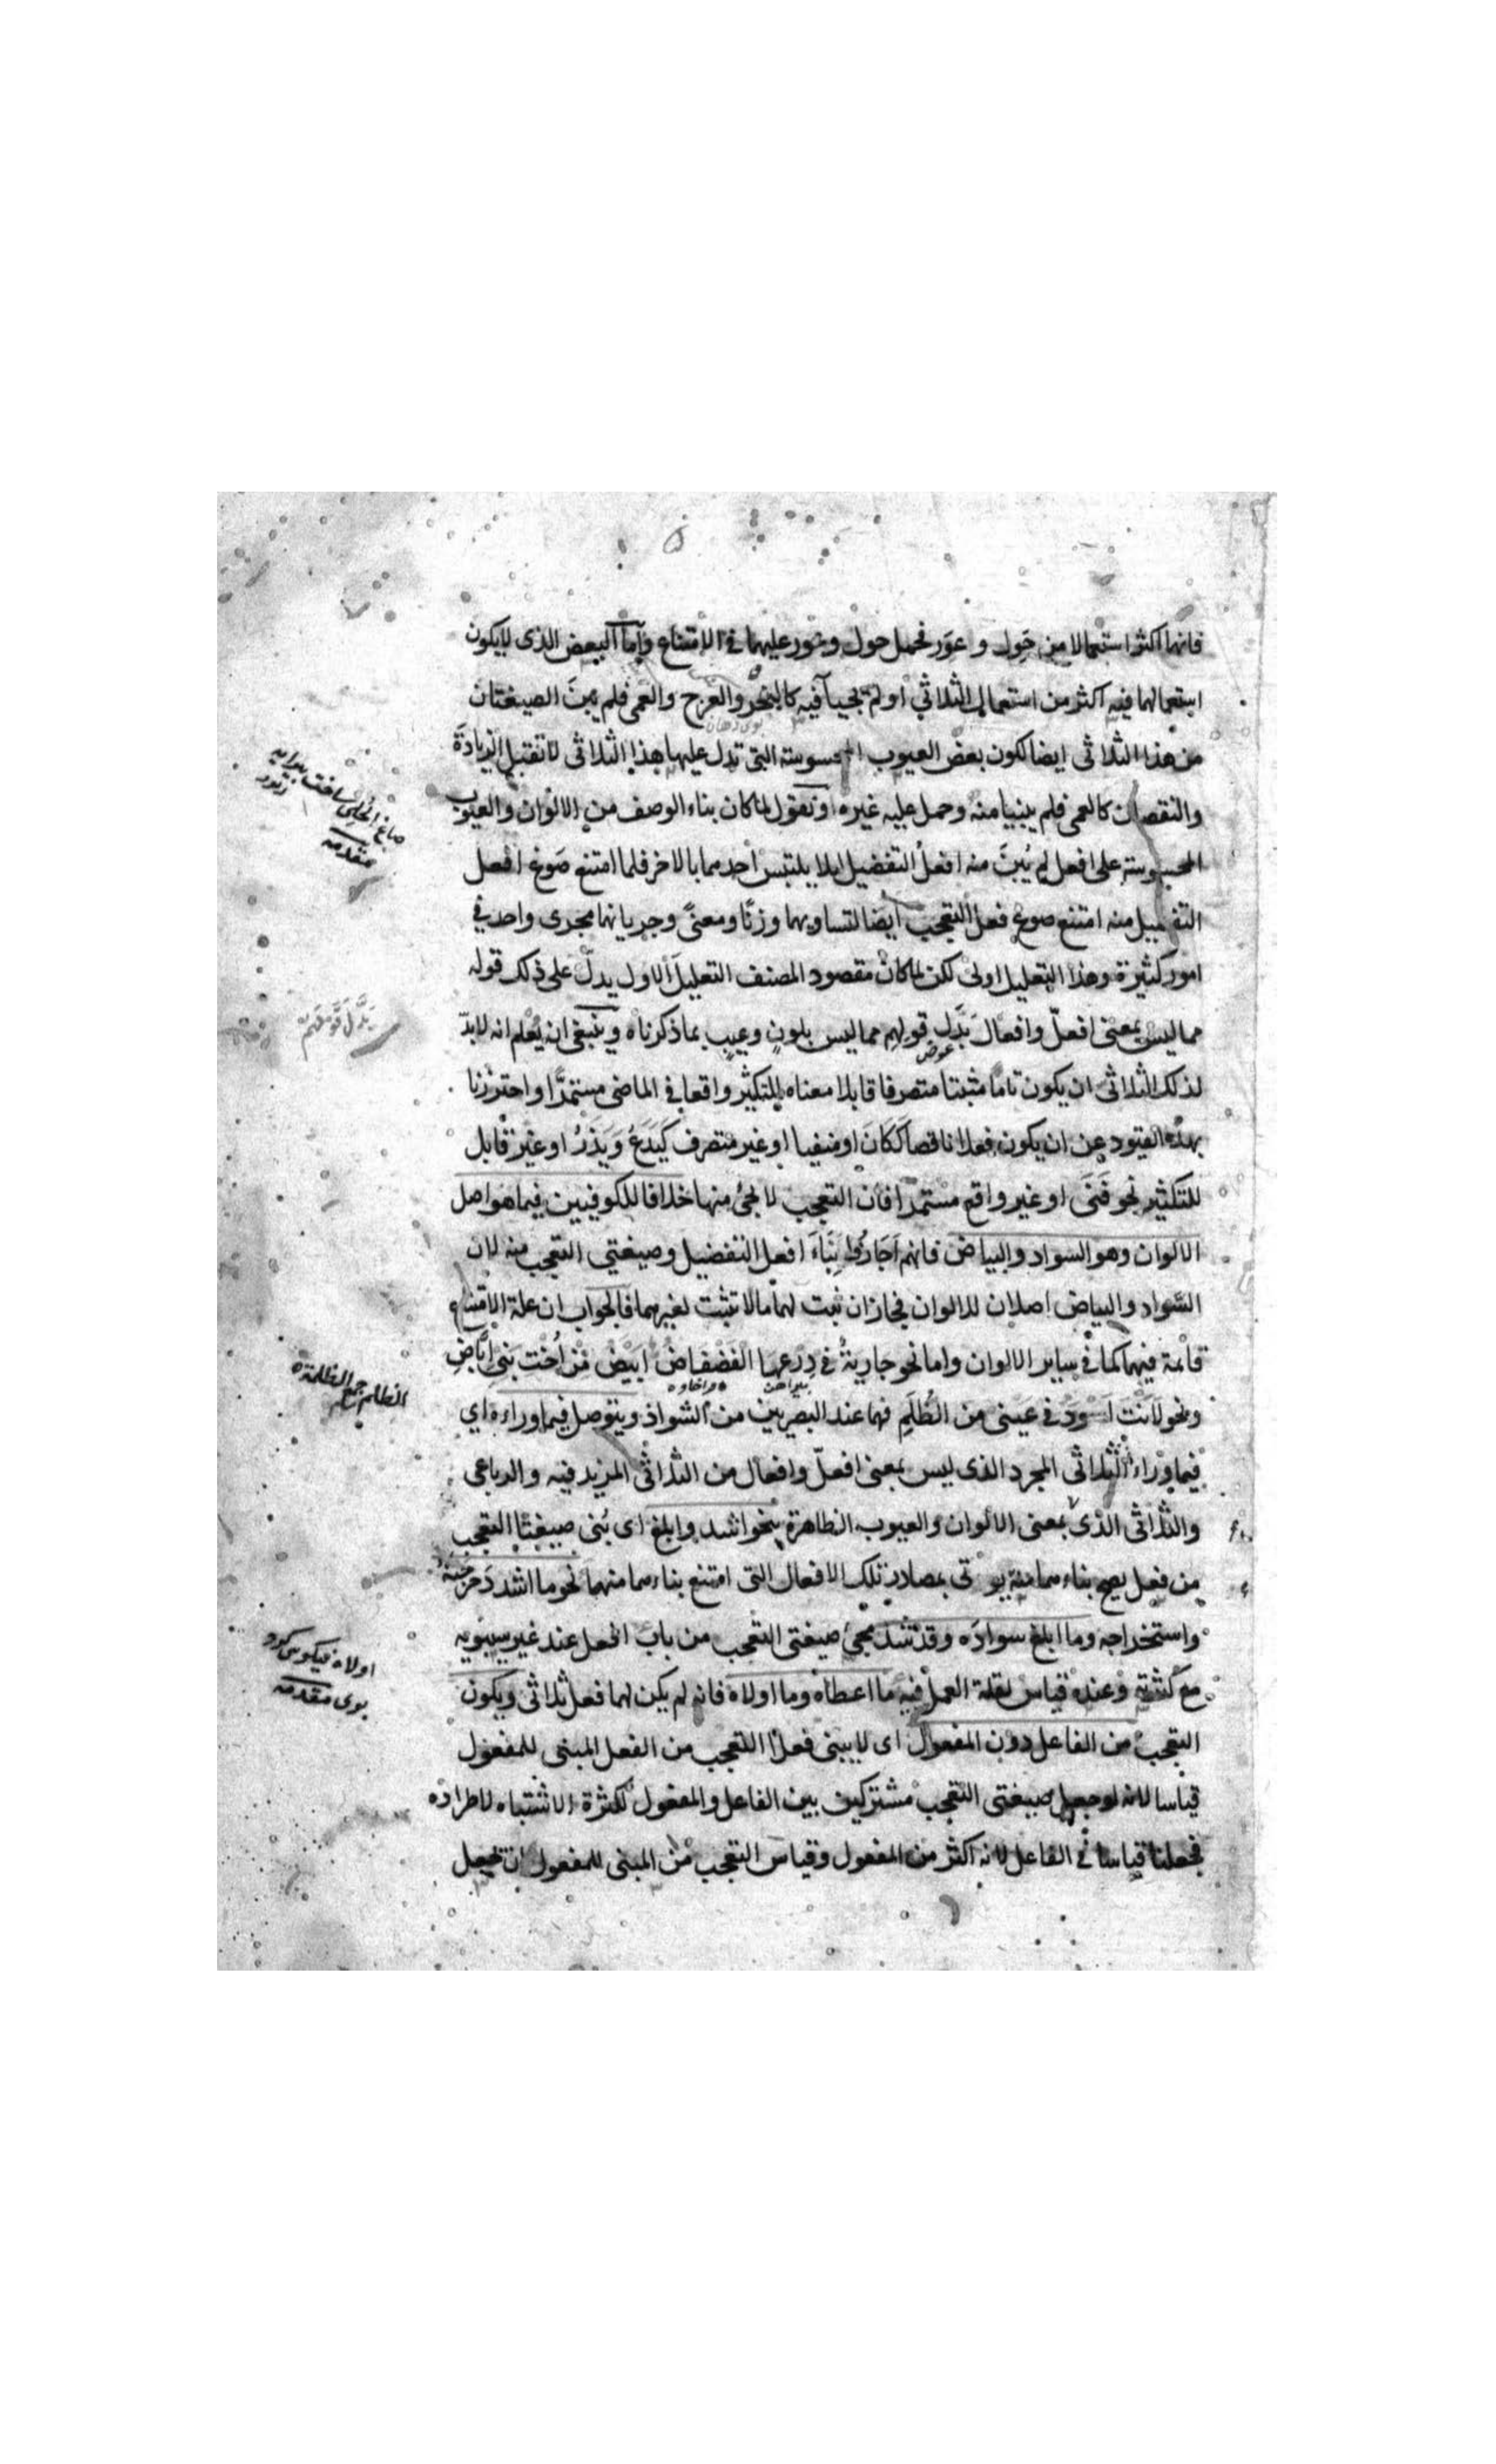 فانهما اكثر استعمالا من حَوِل وعَوِر فحمل حول وعور عليهما في الامتناع وأما البعض الذى لايكون
استعمالهما فيه اكثر من استعمال الثلاثي او لم يجيآ فيه كالبخر والعرج والعمى فلم يبنَ الصيغتان
بوى دهان
من هذا الثلاثى ايضا لكون بعض العيوب المحسوسة التى تدل عليها هذا الثلاثى لا تقبل الزيادة
والنقصان كالعمى فلم يبنيا منه وحمل عليه غيره او نقول لما كان بناء الوصف من الالوان والعيوب
المحسوسة على افعل لم يُبنَ منه افعلُ التفضيل لئلا يلتبس احدهما بالاخر فلما امتنع صَوغ افعل
التفضيل منه امتنع صوغ فعل التعجب ايضا لتساويهما وزنًا ومعنىً وجريانهما مجرى واحد في
امور كثيرة وهذا التعليل اولى لكن لما كان مقصود المصنف التعليل الاول يدلّ على ذلك قوله
مما ليس بمعنى افعلّ وافعالّ بَدَّل قولهم مما ليس بلونٍ وعيبٍ بما ذكرناه وينبغى ان يُعْلم انه لابدّ
عوض
لذلك الثلاثى ان يكون تاما مثبتا متصرفا قابلا معناه للتكثير واقعا في الماضى مستمرًّا واحترزنا
بهذه القيود عن ان يكون فعلا ناقصا ككَانَ او منفيا او غير متصرف كَيَدَعُ وَيَذَرُ او غير قابل
للتكثير نحو فَنَى او غير واقع مستمرًّا فان التعجب لا يجئ منها خلافا للكوفيين فيما هو اصل
الالوان وهو السواد والبياض فانهم اَجَازُوا بِنَاءَ افعل التفضيل وصيغتي التعجب منه لان
السّواد والبياض اصلان للالوان فجاز ان ثبت لهما مالا تثبت لغيرهما فالجواب ان علة الامتناع
قائمة فيهما كما في ساير الالوان واما نحو جاريةٌ في دِرْعِهَا الفَضْفَاضُ اَبْيَضُ مِنْ اُخْتِ بَنِى اِبَاضِ
پيراهن فراخ
ونحو لَاَنْتَ اَسْوَدُ في عَيْنى من الظُّلَمِ فهما عند البصريين من الشواذ ويتوصل فيما وراءه اي
فيما وراء الثلاثى المجرد الذى ليس بمعنى افعلّ وافعالّ من الثلاثى المزيد فيه والرباعى
والثلاثى الذى بمعنى الالوان والعيوب الظاهرة بنحو اشد وابلغ اى بُنى صيغتا التعجب
من فعل يصح بناءهما منه يؤتى بمصادر تلك الافعال التى امتنع بناءهما منهما نحو ما اشد دَحْرجتَه
واستخراجه وما ابلغ سوادَه وقد شذ مجئ صيغتى التعجب من باب افعل عند غير سيبويه
مع كثرته وعنده قياس لقلة العمل فيه ما اعطاه وما اولاه فانه لم يكن لهما فعل ثلاثى ويكون
التعجب من الفاعل دون المفعول اى لا يبنى فعلا التعجب من الفعل المبنى للمفعول
قياسا لانه لو جعل صيغتى التعجب مشتركين بين الفاعل والمفعول لكثرة الاشتباه لاطراده
فجعلنا قياسا في الفاعل لانه اكثر من المفعول وقياس التعجب من المبنى للمفعول ان تجعل
صاغ الحُلِى ساخت پيرايه
مقدمه
الظلم جمع الظلمة
اولاه نيكوى كرد
مقدمه